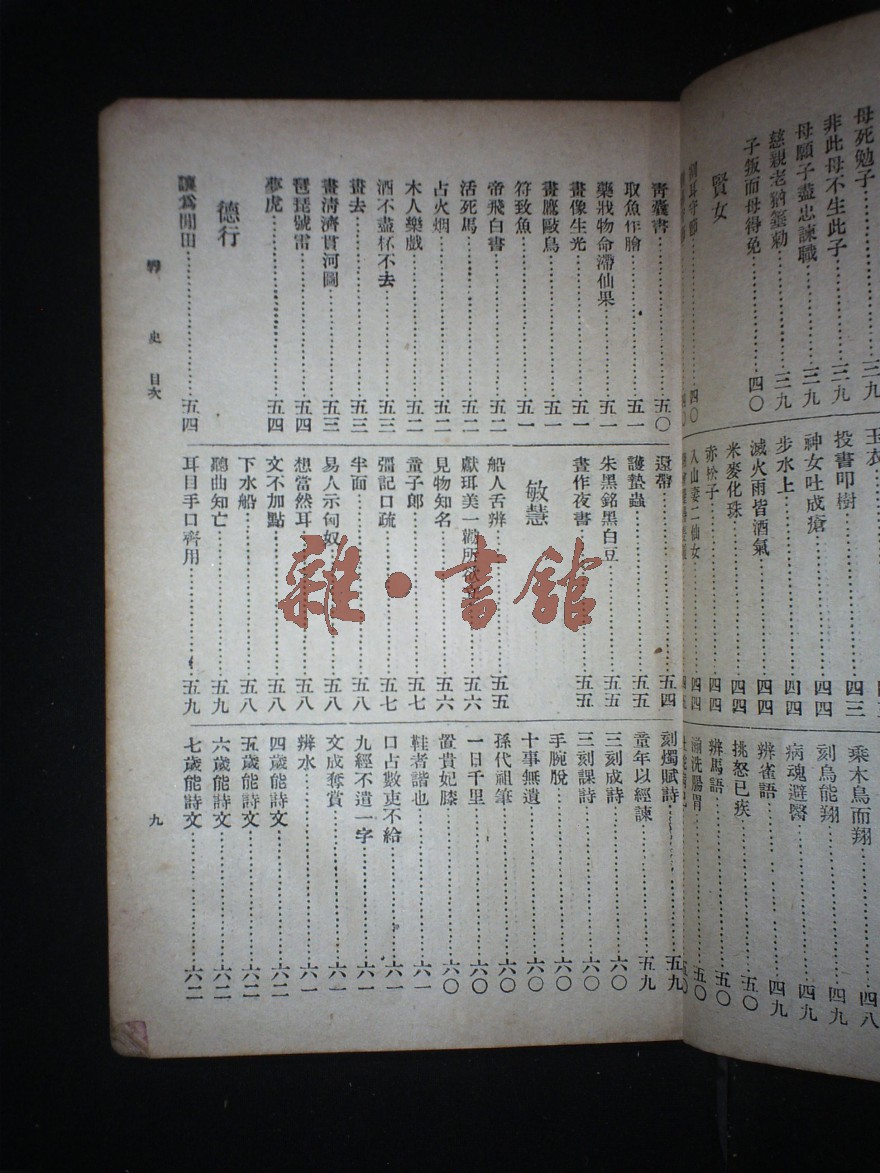 母死勉子……三九
非此母不生此子……三九
母願子盡忠諫職……三九
慈親老猶箠勅……三九
子叛而母得免……四〇
賢女
耳守節……四〇
玉衣
投書叩樹……四三
神女吐成瘡……四四
步水上……四四
滅火雨皆酒氣……四四
米麥化珠……四四
赤松子……四四
入山妻二仙女……四四
乘木鳥而翔……四八
刻鳥能翔……四九
病魂避醫……四九
辨雀語……四九
挑怒已疾……五〇
辨馬語……五〇
湔洗腸胃……五〇
青囊書……五〇
取魚作膾……五一
藥戕物命滯仙果……五一
畫像生光……五一
畫鷹毆鳥……五一
符致魚……五一
帝飛白書……五二
活死馬……五二
占火烟……五二
木人樂戲……五二
酒不盡杯不去……五三
畫去……五三
畫清濟貫河圖……五三
琵琶號雷……五四
夢虎……五四
德行
讓爲閒田……五四
遼帶……五四
護蟄蟲……五五
朱黑銘黑白豆……五五
晝作夜書……五五
敏慧
船人舌辨……五五
獻珥美一徹所欲立……五六
見物知名……五六
童子郎……五七
彊記口疏……五七
半面……五八
易人示匈奴……五八
想當然耳……五八
文不加點……五八
下水船……五八
聽曲知亡……五九
耳目手口齊用……五九
刻燭賦詩……五九
童年以經諫……五九
三刻成詩……六〇
三刻課詩……六〇
手腕脫……六〇
十事無遺……六〇
孫代祖筆……六〇
一日千里……六〇
置貴妃膝……六〇
鞋者諧也……六一
口占數吏不給……六一
九經不遺一字……六一
文成奪賞……六一
辨水……六一
四歲能詩文……六二
五歲能詩文……六二
六歲能詩文……六二
七歲能詩文……六二
史 目次
九
雜·書館